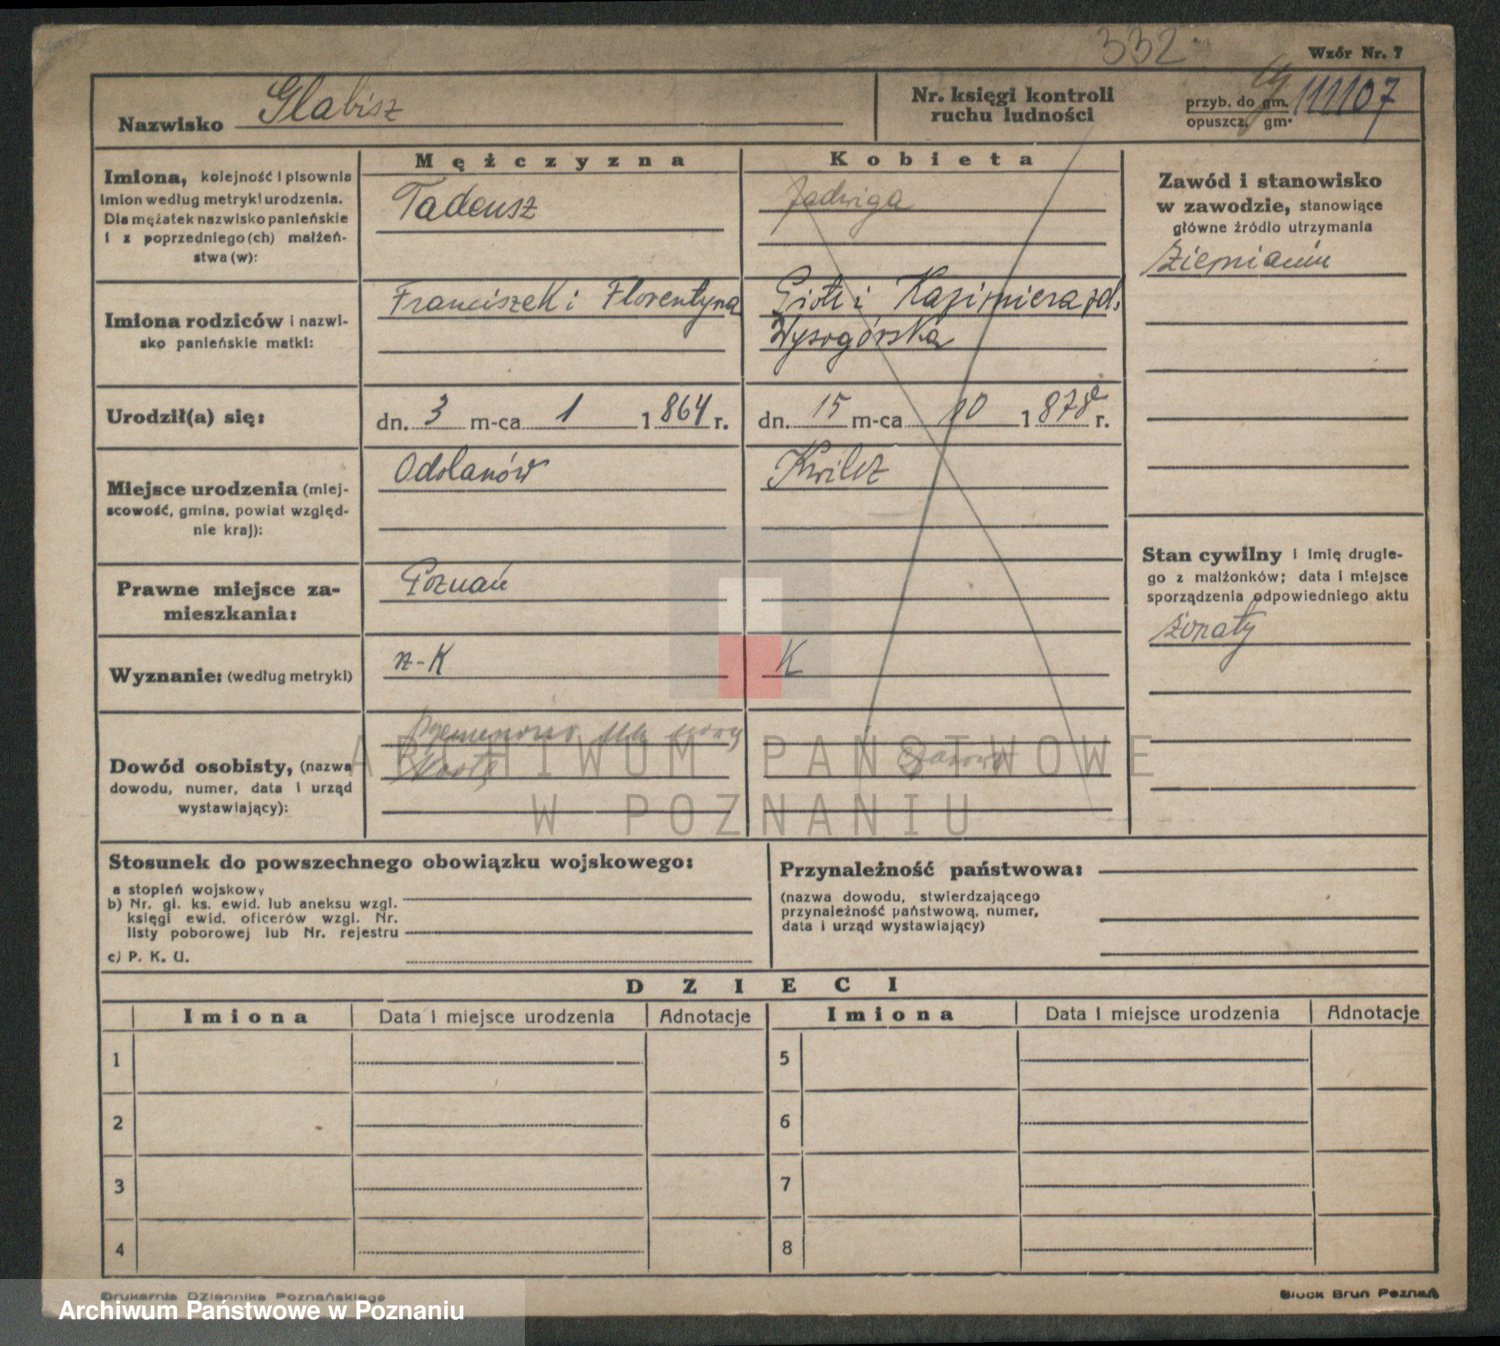 332
Wzór Nr. 7
Nazwisko Glabisz
Nr. księgi kontroli
ruchu ludności
przyb. do gm.
opuszcz. gm.
111107
Mężczyzna
Kobieta
Imiona, kolejność i pisownia
imion według metryki urodzenia.
Dla mężatek nazwisko panieńskie
i z poprzedniego (ch) małżeń-
stwa (w):
Tadeusz
Jadwiga
Zawód i stanowisko
w zawodzie, stanowiące
główne źródło utrzymania
ziemianin
Imiona rodziców i nazwi-
sko panieńskie matki:
Franciszek i Florentyna
Piotr i Kazimiera zd.
Wysogórska
Urodził(a) się:
dn. 3 m-ca 1 1864 r.
dn. 15 m-ca 10 1878 r.
Miejsce urodzenia (miej-
scowość, gmina, powiat względ-
nie kraj):
Odolanów
Kwilcz
Stan cywilny i imię drugie-
go z małżonków; data i miejsce
sporządzenia odpowiedniego aktu
żonaty
Prawne miejsce za-
mieszkania:
Poznań
Wyznanie: (według metryki)
rz-K
K
Dowód osobisty, (nazwa
dowodu, numer, data i urząd
wystawiający):
ARCHIWUM PAŃSTWOWE
W POZNANIU
Stosunek do powszechnego obowiązku wojskowego:
a stopień wojskowy
b) Nr. gl. ks. ewid. lub aneksu wzgl.
księgi ewid. oficerów wzgl. Nr.
listy poborowej lub Nr. rejestru
c) P. K. U.
Przynależność państwowa:
(nazwa dowodu, stwierdzającego
przynależność państwową, numer,
data i urząd wystawiający)
DZIECI
Imiona Data i miejsce urodzenia Adnotacje Imiona Data i miejsce urodzenia Adnotacje
1 5
2 6
3 7
4 8
Drukarnia Dziennika Poznańskiego
Block Brun Poznań
Archiwum Państwowe w Poznaniu